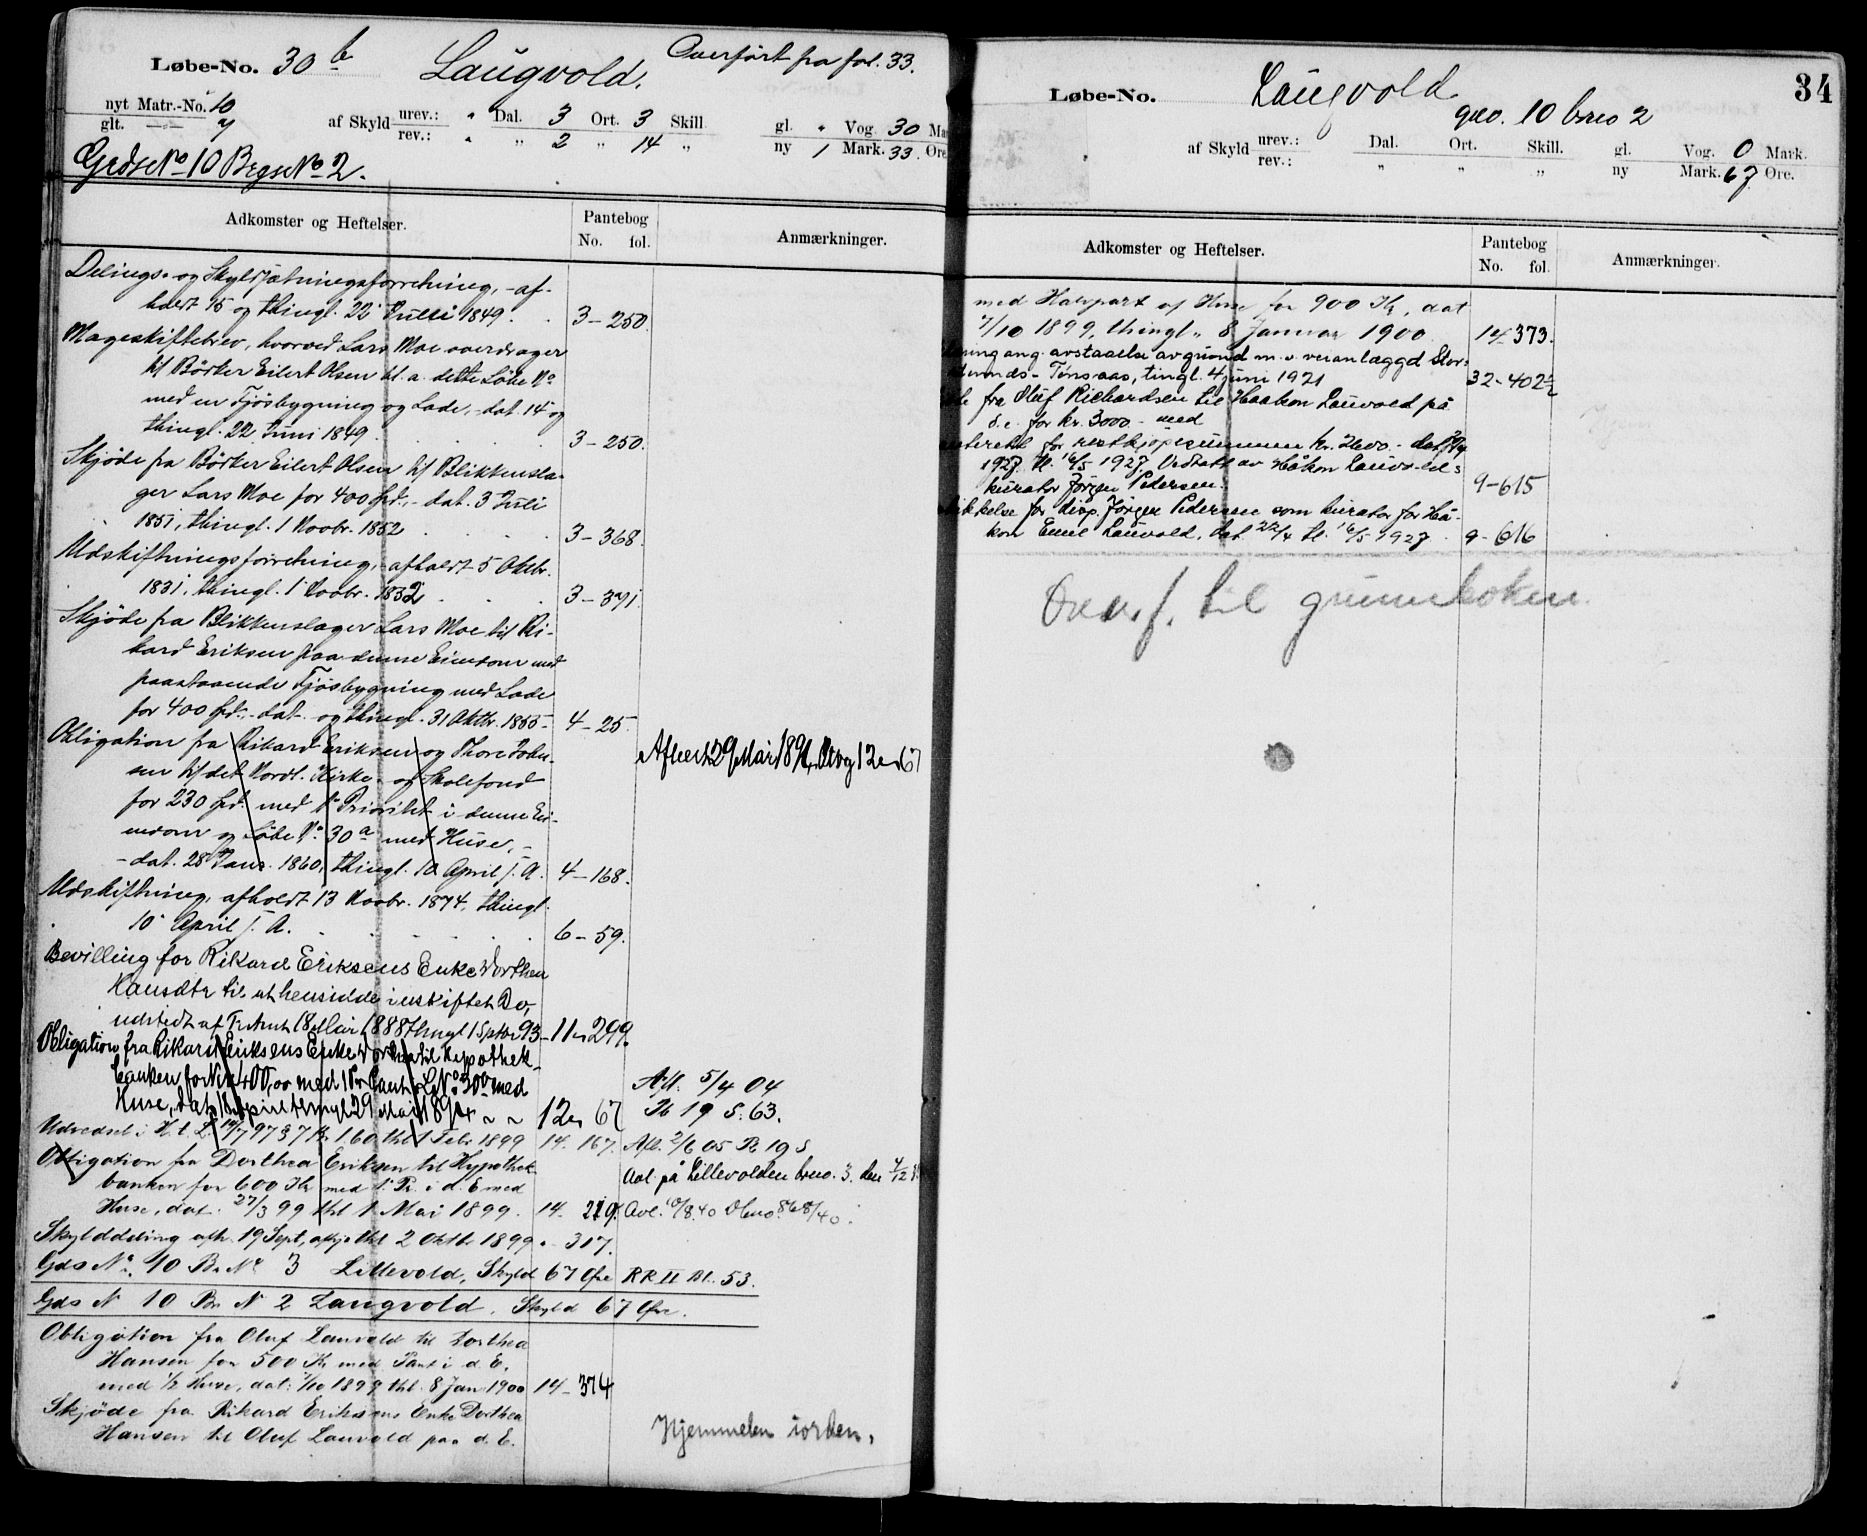 Løbe-No. 30 b Laugvold. Overført fra fol. 33.
nyt Matr.-No. 10
glt. — 7
af Skyld urev.: " Dal. 3 Ort. 3 Skill. gl. " Vog 30 Ma
rev.: " " 2 " 14 " ny 1 Mark. 33. Øre
Grds No 10 Brgs No 2.
Adkomster og Heftelser.
Pantebog
No. fol.
Anmærkninger.
Delings- og Skyldsætningsforretning, - af-
holdt 15 og thingl. 22 Juni 1849. 3-250.
Mageskiftebrev, hvorved Lars Moe overdrager
til Bödker Eilert Olsen bl. a. dette Löbe No
med en Fjösbygning og Lade, - dat. 14 og
thingl. 22 Juni 1849. 3-250.
Skjöde fra Bödker Eilert Olsen til Blikkensla-
ger Lars Moe for 400 Spd., - dat. 3 Juli
1851, thingl. 1 Novbr. 1852 3-368.
Udskiftningsforretning, - afholdt 5 Oktbr.
1831, thingl. 1 Novbr. 1852 3-371.
Skjöde fra Blikkenslager Lars Moe til Ri-
kard Eriksen paa denne Eiendom med
paastaaende Fjösbygning med Lade
for 400 Spd., - dat. og thingl. 31 Oktbr. 1855 - 4-25.
Obligation fra Rikard Eriksen og Thore John-
sen til det Nordl. Kirke- og Skolefond
for 230 Spd. med 1 Prioritet i denne Ei-
endom og Löbe No 30 a med Huse, -
- dat. 28 Janr. 1860, thingl. 10 April s. A. 4-168.
Aflæst 29 Mai 1894, Pbog 12 - 67
Udskiftning, afholdt 13 Novbr. 1874, thingl.
10 April s. A. 6-59.
Bevilling for Rikard Eriksens Enke Dorthea
Hansdtr til at hensidde i uskiftet Bo,
udstedt af Tr. Amt 18 Mai 1888 thingl 1 Sptbr 93 - 11 - 299.
Obligation fra Rikard Eriksens Enke Dorthea til Hypothek-
banken for Kr 400,00 med 1 Pr Pant i LNo 30 b med
Huse, dat. April thingl 29 Mai 1894 12 - 67
Afl. 5/4 04
Pb 19 S. 63.
Udredsel i H. t. L. 14/7 97 § 7 Kr 160 thl 1 Febr 1899 14. 167. Afl. 2/6 05 Pb 19 S
Obligation fra Dorthea Eriksen til Hypothek
banken for 600 Kr med 1. Pr. i d. E med
Huse, dat. 27/3 99 thl 1 Mai 1899. 14 - 219.
Avl. på Lillevolden bno. 3. den 4/12
Avl. 10/8.40 Dbno. 868/40.
Skylddeling afh. 19 Sept, afhj. thl 2 Oktbr 1899 " - 317.
Gds No. 10 Br No 3 Lillevold, Skyld 67 Øre RR II Bl. 53.
Gds N 10 Br N 2 Laugvold, Skyld 67 Øre.
Obligation fra Oluf Lauvold til Dorthea
Hansen for 500 Kr med Pant i d. E.
med 1/2 Huse, dat: 7/10 1899 thl. 8 Jan 1900 14 - 374
Skjöde fra Rikard Eriksens Enke Dorthea
Hansen til Oluf Lauvold paa d. E.
Hjemmelen iorden.
34
Løbe-No. Laugvold
gno. 10 bno 2
af Skyld urev.: Dal. Ort. Skill. gl. Vog. 0 Mark.
rev.: " " " ny Mark. 67 Øre.
Adkomster og Heftelser.
Pantebog
No. fol.
Anmærkninger.
med Halvpart af Huse for 900 Kr, dat
7/10 1899, thingl. 8 Januar 1900 14 373.
ang. avstaaelse av grund m. v. veranlæggd Stor-
Tönsaas, tingl. 4 juni 1921 32-402
fra Oluf Richardsen til Haakon Lauvold på
d. e. for kr. 3000. - med
for restkjöpesummen kr. - dat.
1927. tl. 16/5 1927. Vedtatt av Håkon Lauvolds
kurator Jörgen Pedersen. 9-615
for disp. Jörgen Pedersen som kurator for Hå-
kon Emil Lauvold, dat 22/4 tl. 16/5 1927. 9-616
Overf. til grunnboken.